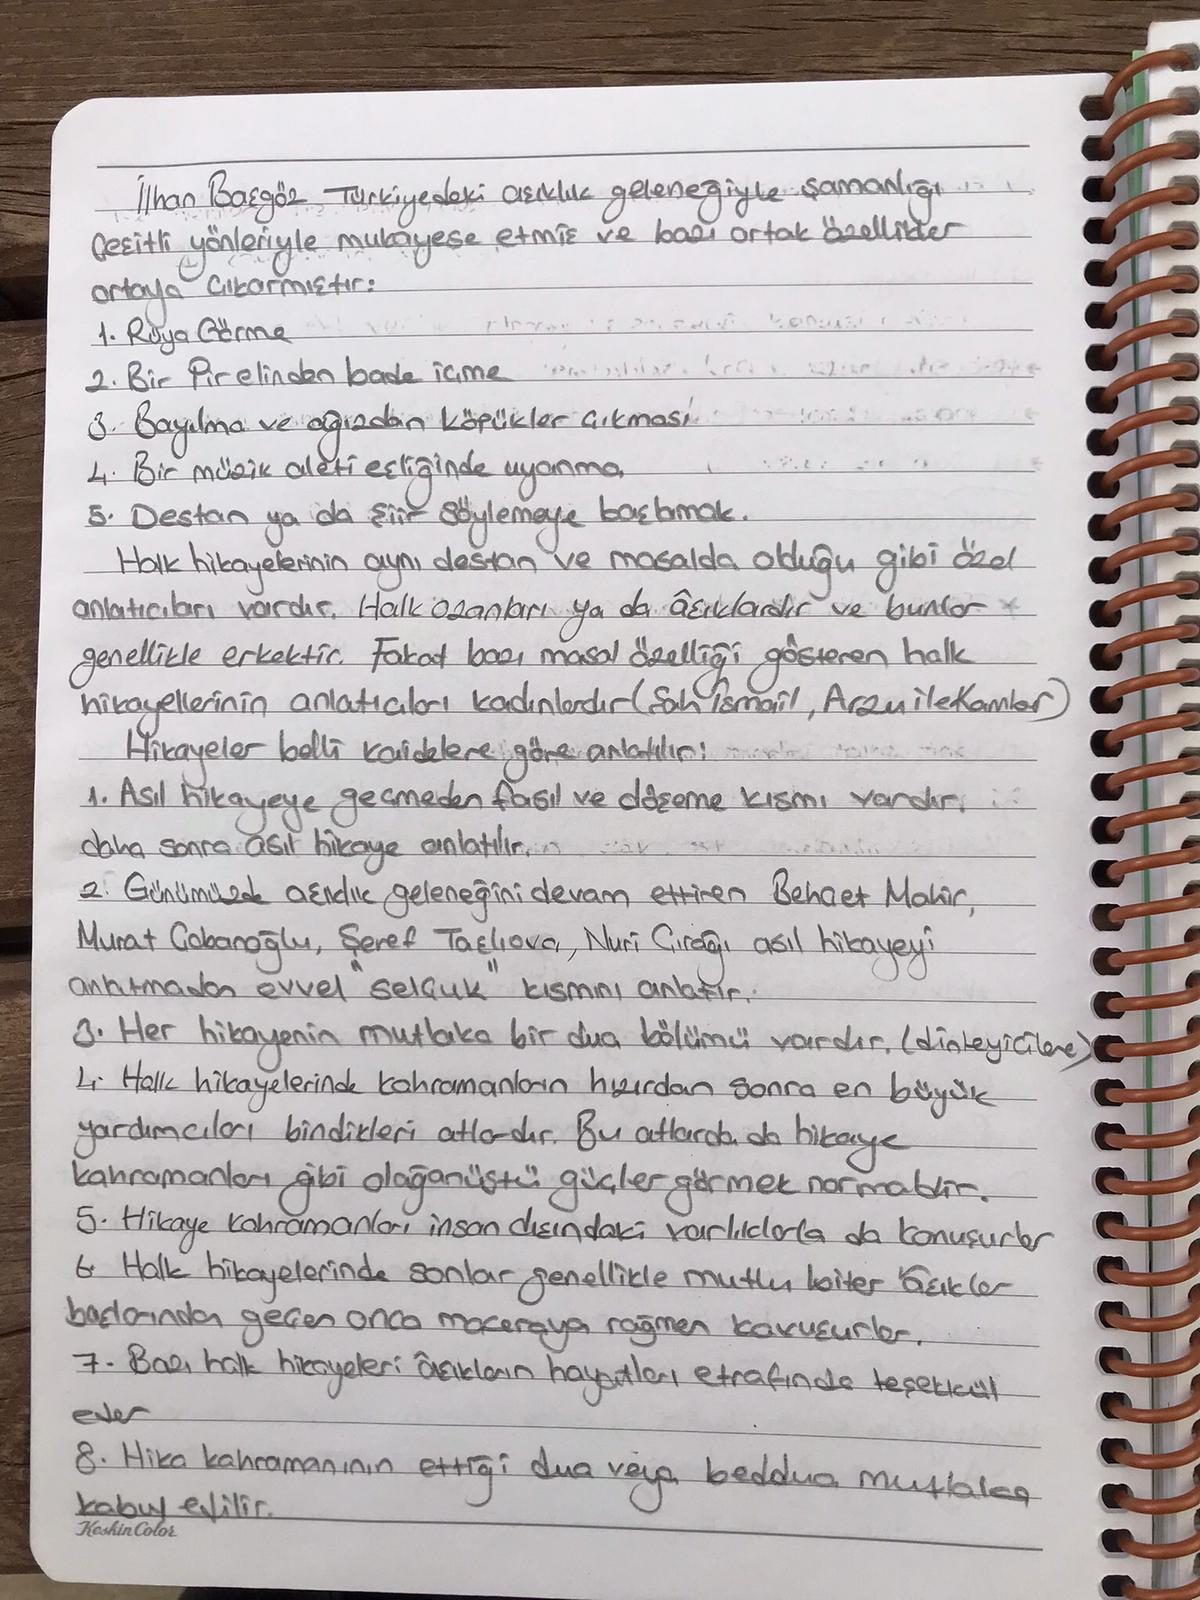 İlhan Başgöz Türkiyedeki aşıklık geleneğiyle şamanlığı
çeşitli yönleriyle mukayese etmiş ve bazı ortak özellikler
ortaya çıkarmıştır:
1. Rüya Görme
2. Bir Pir elinden bade içme
3. Bayılma ve ağızdan köpükler çıkması
4. Bir müzik aleti eşliğinde uyanma
5. Destan ya da şiir söylemeye başlamak.
Halk hikayelerinin aynı destan ve masalda olduğu gibi özel
anlatıcıları vardır. Halk ozanları ya da âşıklardır ve bunlar
genellikle erkektir. Fakat bazı masal özelliği gösteren halk
hikayellerinin anlatıcıları kadınlardır (Şah İsmail, Arzu ile Kamber)
Hikayeler belli kaidelere göre anlatılır:
1. Asıl hikayeye geçmeden fasıl ve döşeme kısmı vardır.
daha sonra asıl hikaye anlatılır.
2. Günümüzde aşıklık geleneğini devam ettiren Behçet Mahir,
Murat Çobanoğlu, Şeref Taşlıova, Nuri Çırağı asıl hikayeyi
anlatmadan evvel "selçuk" kısmını anlatır.
3. Her hikayenin mutlaka bir dua bölümü vardır. (dinleyicilere)
4. Halk hikayelerinde kahramanların hızırdan sonra en büyük
yardımcıları bindikleri atlardır. Bu atlarda da hikaye
kahramanları gibi olağanüstü güçler görmek normaldir.
5. Hikaye kahramanları insan dışındaki varlıklarla da konuşurlar
6. Halk hikayelerinde sonlar genellikle mutlu biter âşıklar
başlarından geçen onca maceraya rağmen kavuşurlar.
7. Bazı halk hikayeleri âşıkların hayatları etrafında teşekkül
eder
8. Hika kahramanının ettiği dua veya beddua mutlaka
kabul edilir.
KeskinColor